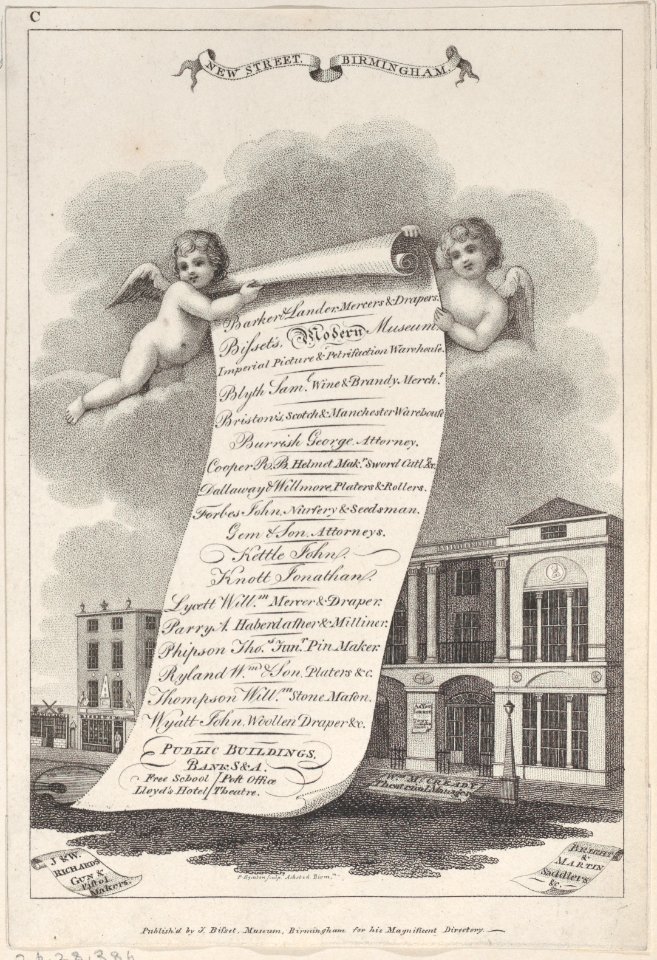 C
NEW STREET. BIRMINGHAM.
Barker & Lander, Mercers & Drapers.
Biſset's, Modern Museum.
Imperial Picture & Petrifaction Warehouſe.
Blyth Sam.l Wine & Brandy Merch.t
Bristow's, Scotch & Manchester Warehouſe
Burrish George, Attorney.
Cooper R.B. Helmet Mak.r Sword Cutl.r &c.
Dallaway & Willmore, Platers & Rollers.
Forbes John, Nurſery & Seedsman.
Gem & Son, Attorneys.
Kettle John.
Knott Jonathan.
Lycett Will.m Mercer & Draper.
Parry A. Haberdaſher & Milliner.
Phipson Tho.s Jun.r Pin Maker.
Ryland W.m & Son, Platers &c.
Thompson Will.m Stone Maſon.
Wyatt John, Woollen Draper &c.
PUBLIC BUILDINGS,
BANKS &A.
Free School Post Office
Lloyd's Hotel Theatre.
W.m McCREADY
Theatrical Manager
J & W.
RICHARDS
GUN &
Pistol
Makers.
BRIGHT
&
MARTIN
Saddlers
&c.
Publish'd by J. Biſset, Museum, Birmingham for his Magnificent Directory.
26.28.386